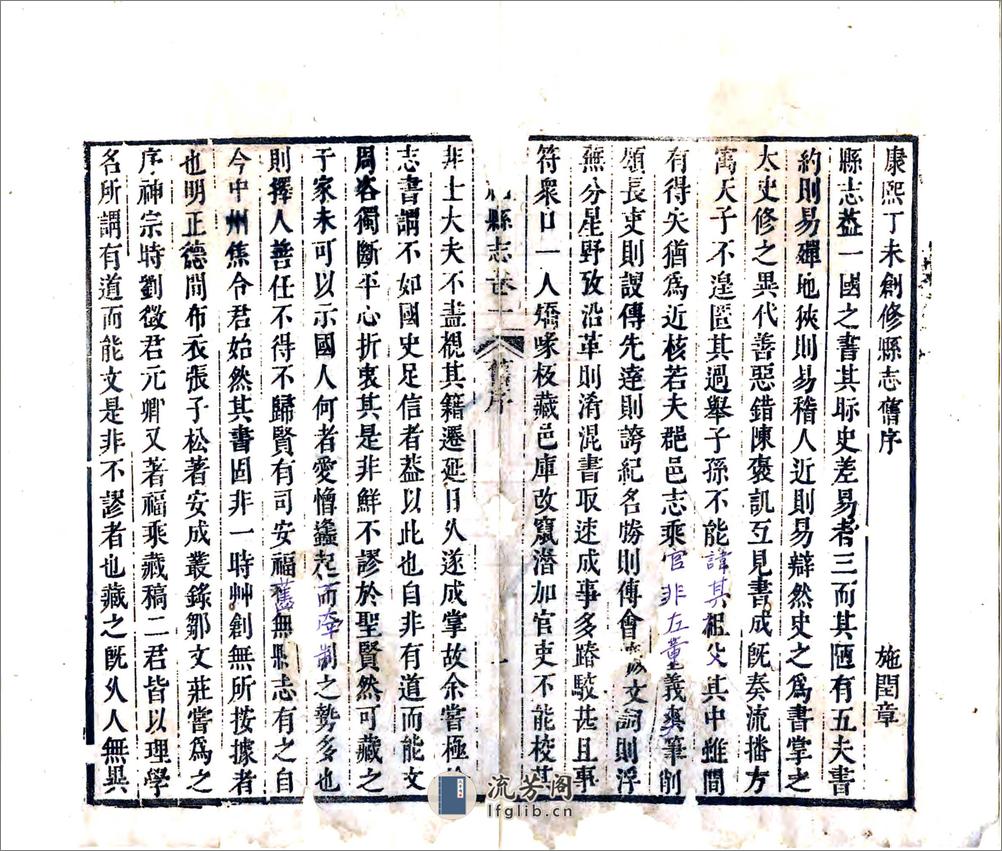 康熙丁未創修縣志舊序
施閏章
縣志葢一國之書其眎史差易者三而其陋有五夫書
約則易殫地狹則易稽人近則易辯然史之爲書掌之
太史修之異代善惡錯陳褒譏互見書成旣奏流播方
寓天子不遑匿其過舉子孫不能諱其祖父其中雖間
有得失猶爲近核若夫郡邑志乘官非左董義爽筆削
頌長吏則諛傳先達則誇紀名勝則傳會文詞則浮
蕪分星野攷沿革則淆混書取速成事多踳駁甚且事
符衆口一人撟啄板藏邑庫改竄潛加官吏不能校其
縣志卷十
舊序
一
非士大夫不盡視其籍遷延日久遂成掌故余嘗極
志書謂不如國史足信者葢以此也自非有道而能文
周咨獨斷平心折衷其是非鮮不謬於聖賢然可藏之
于家未可以示國人何者愛憎蠭起而牽制之勢多也
則擇人善任不得不歸賢有司安福舊無縣志有之自
今中州焦令君始然其書固非一時艸創無所按據者
也明正德間布衣張子松著安成叢錄鄒文莊嘗爲之
序神宗時劉徵君元卿又著福乘藏稿二君皆以理學
名所謂有道而能文是非不謬者也藏之旣久人無異
流芳阁
lfglib.cn